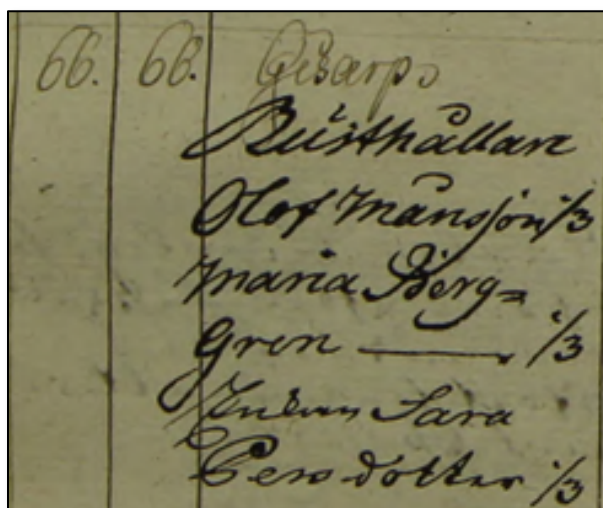 66. 66. Gisarps
Rusthållare
Olof Månsson 1/3
Maria Berg=
Gren — 1/3
Enkan Sara
Persdotter 1/3